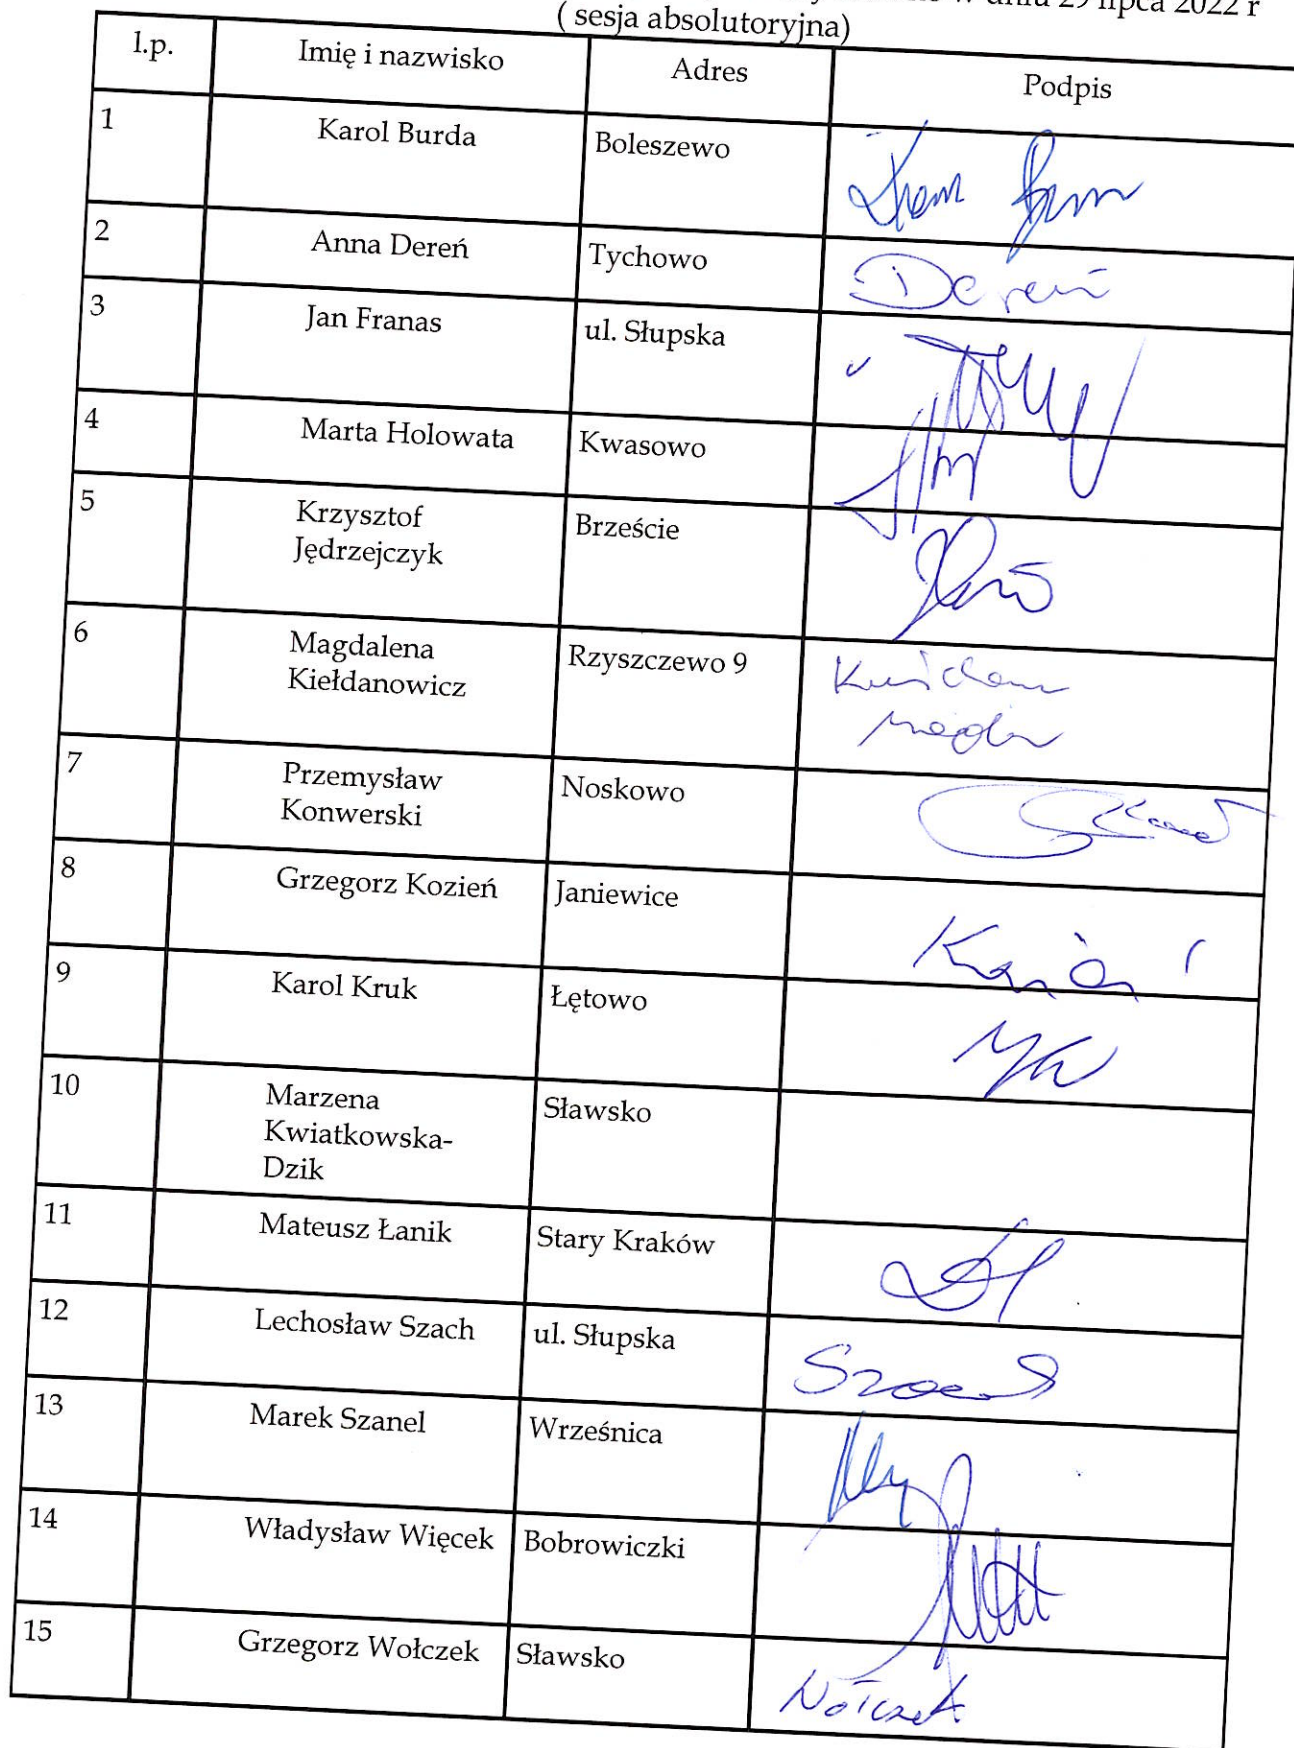 dniu 29 lipca 2022 r
( sesja absolutoryjna)
l.p. Imię i nazwisko Adres Podpis
1 Karol Burda Boleszewo
2 Anna Dereń Tychowo Dereń
3 Jan Franas ul. Słupska
4 Marta Holowata Kwasowo
5 Krzysztof Brzeście
Jędrzejczyk
6 Magdalena Rzyszczewo 9
Kiełdanowicz
7 Przemysław Noskowo
Konwerski
8 Grzegorz Kozień Janiewice
9 Karol Kruk Łętowo
10 Marzena Sławsko
Kwiatkowska-
Dzik
11 Mateusz Łanik Stary Kraków
12 Lechosław Szach ul. Słupska
13 Marek Szanel Wrześnica
14 Władysław Więcek Bobrowiczki
15 Grzegorz Wołczek Sławsko